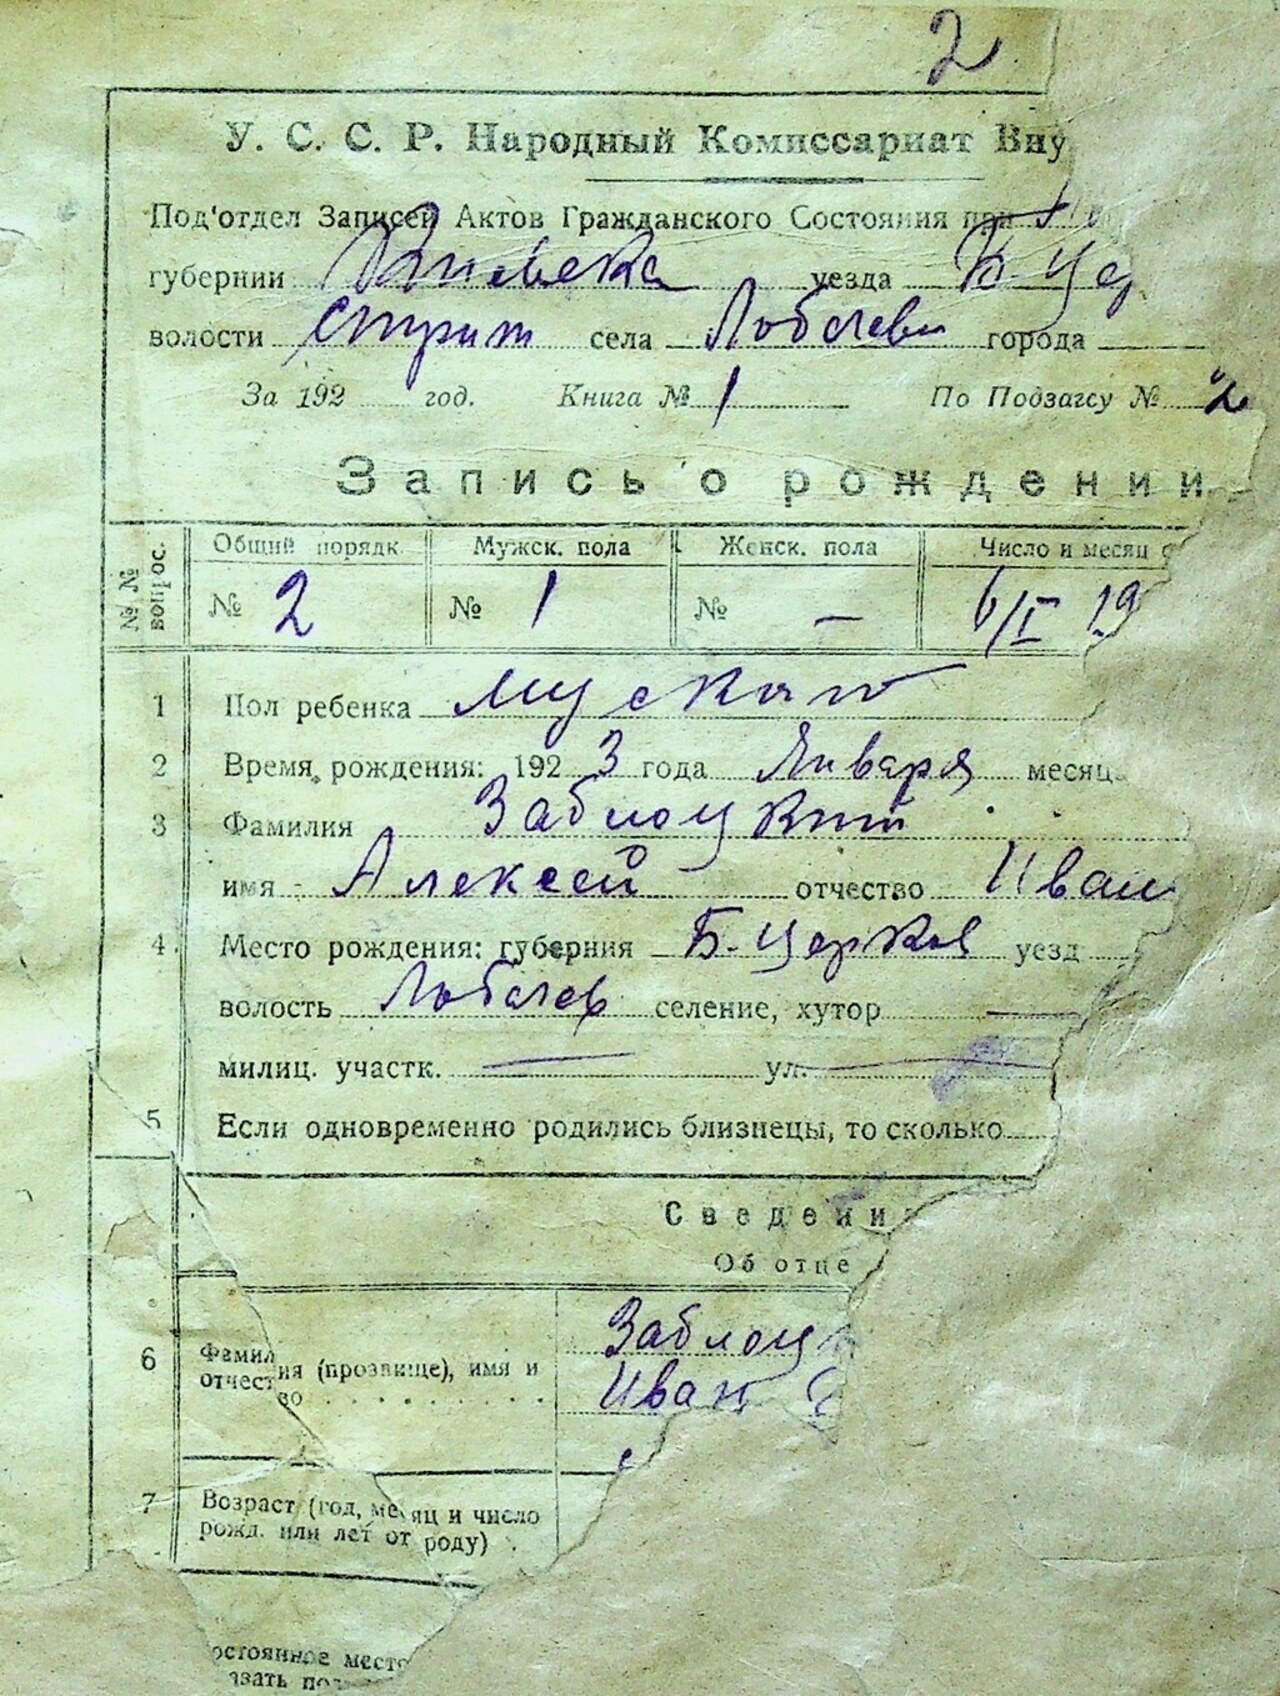 2
У. С. С. Р. Народный Комиссариат Вну
Под'отдел Записей Актов Гражданского Состояния при
губернии уезда Б-Цер
волости села Лобачеви города
За 192 год. Книга № 1 По Подзагсу № 2
Запись о рождении
№ № вопрос. Общий порядк. Мужск. пола Женск. пола Число и месяц с
№ 2 № 1 № — 6/I 19
1 Пол ребенка
2 Время рождения: 192 3 года Января месяца
3 Фамилия Заблоцкий
имя Алексей отчество Иван
4. Место рождения: губерния Б-Церков уезд
волость Лобачев селение, хутор —
милиц. участк. — ул. —
5 Если одновременно родились близнецы, то сколько
Сведения
Об отце
6 Фамилия (прозвище), имя и Заблоц
отчество . . . . . . . . . . Иван
7 Возраст (год, месяц и число
рожд. или лет от роду) .
остоянное место
азать по